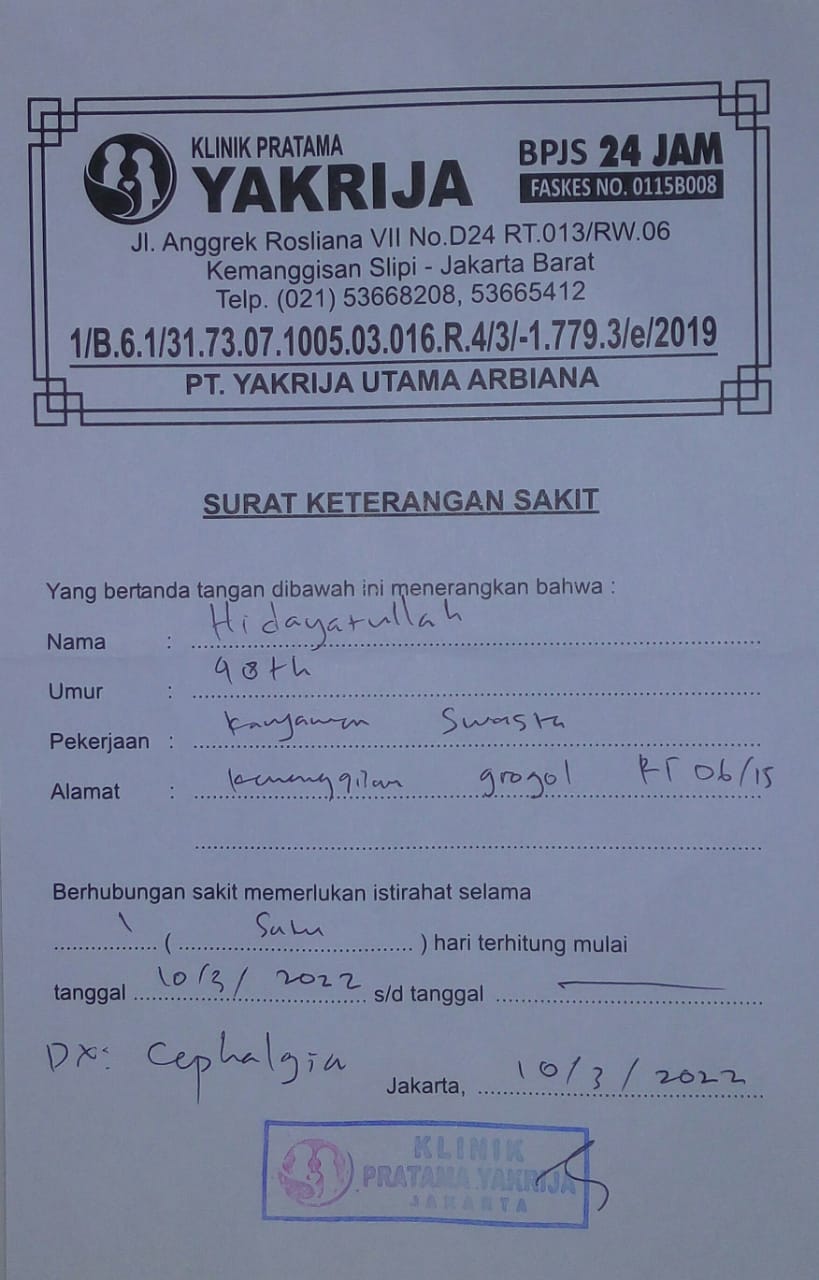 KLINIK PRATAMA
YAKRIJA
BPJS 24 JAM
FASKES NO. 0115B008
Jl. Anggrek Rosliana VII No.D24 RT.013/RW.06
Kemanggisan Slipi - Jakarta Barat
Telp. (021) 53668208, 53665412
1/B.6.1/31.73.07.1005.03.016.R.4/3/-1.779.3/e/2019
PT. YAKRIJA UTAMA ARBIANA
SURAT KETERANGAN SAKIT
Yang bertanda tangan dibawah ini menerangkan bahwa :
Nama : Hidayatullah
Umur : 48 th
Pekerjaan : karyawan Swasta
Alamat : grogol RT 06/15
Berhubungan sakit memerlukan istirahat selama
1 ( Satu ) hari terhitung mulai
tanggal 10/3/2022 s/d tanggal —
DX: Cephalgia
Jakarta, 10/3/2022
KLINIK
PRATAMA YAKRIJA
JAKARTA